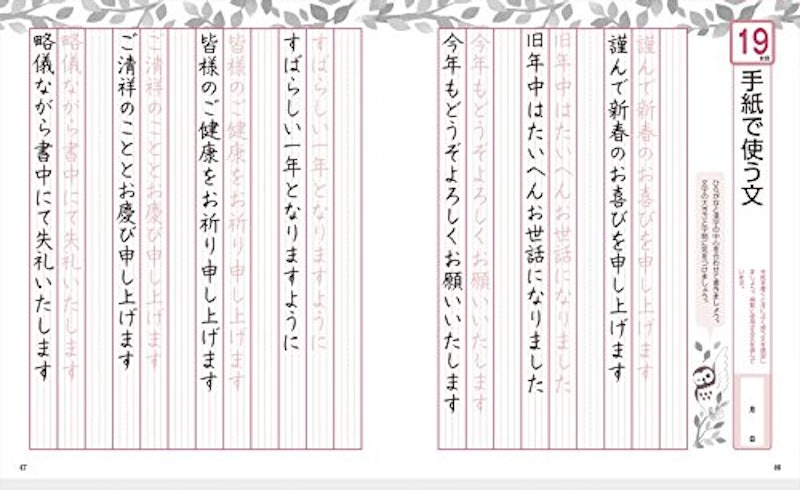 19
手紙で使う文
月　日
ひらがなと漢字の中心を合わせて書きましょう。
文字の大きさと字間に気をつけましょう。
謹んで新春のお喜びを申し上げます
謹んで新春のお喜びを申し上げます
旧年中はたいへんお世話になりました
旧年中はたいへんお世話になりました
今年もどうぞよろしくお願いいたします
今年もどうぞよろしくお願いいたします
46
すばらしい一年となりますように
すばらしい一年となりますように
皆様のご健康をお祈り申し上げます
皆様のご健康をお祈り申し上げます
ご清祥のこととお慶び申し上げます
ご清祥のこととお慶び申し上げます
略儀ながら書中にて失礼いたします
略儀ながら書中にて失礼いたします
47